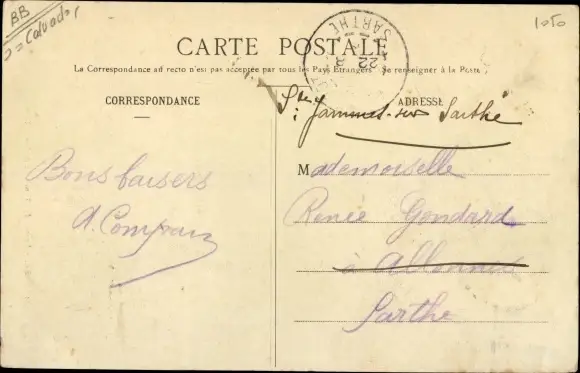 BB
Calvados
1050
SARTHE
22
CARTE POSTALE
La Correspondance au recto n'est pas acceptée par tous les Pays Etrangers. Se renseigner à la Poste.
CORRESPONDANCE
ADRESSE
Ste Jammes-sur Sarthe
Bons baisers
Mademoiselle
Renée Gondard
à Allonnes
Sarthe